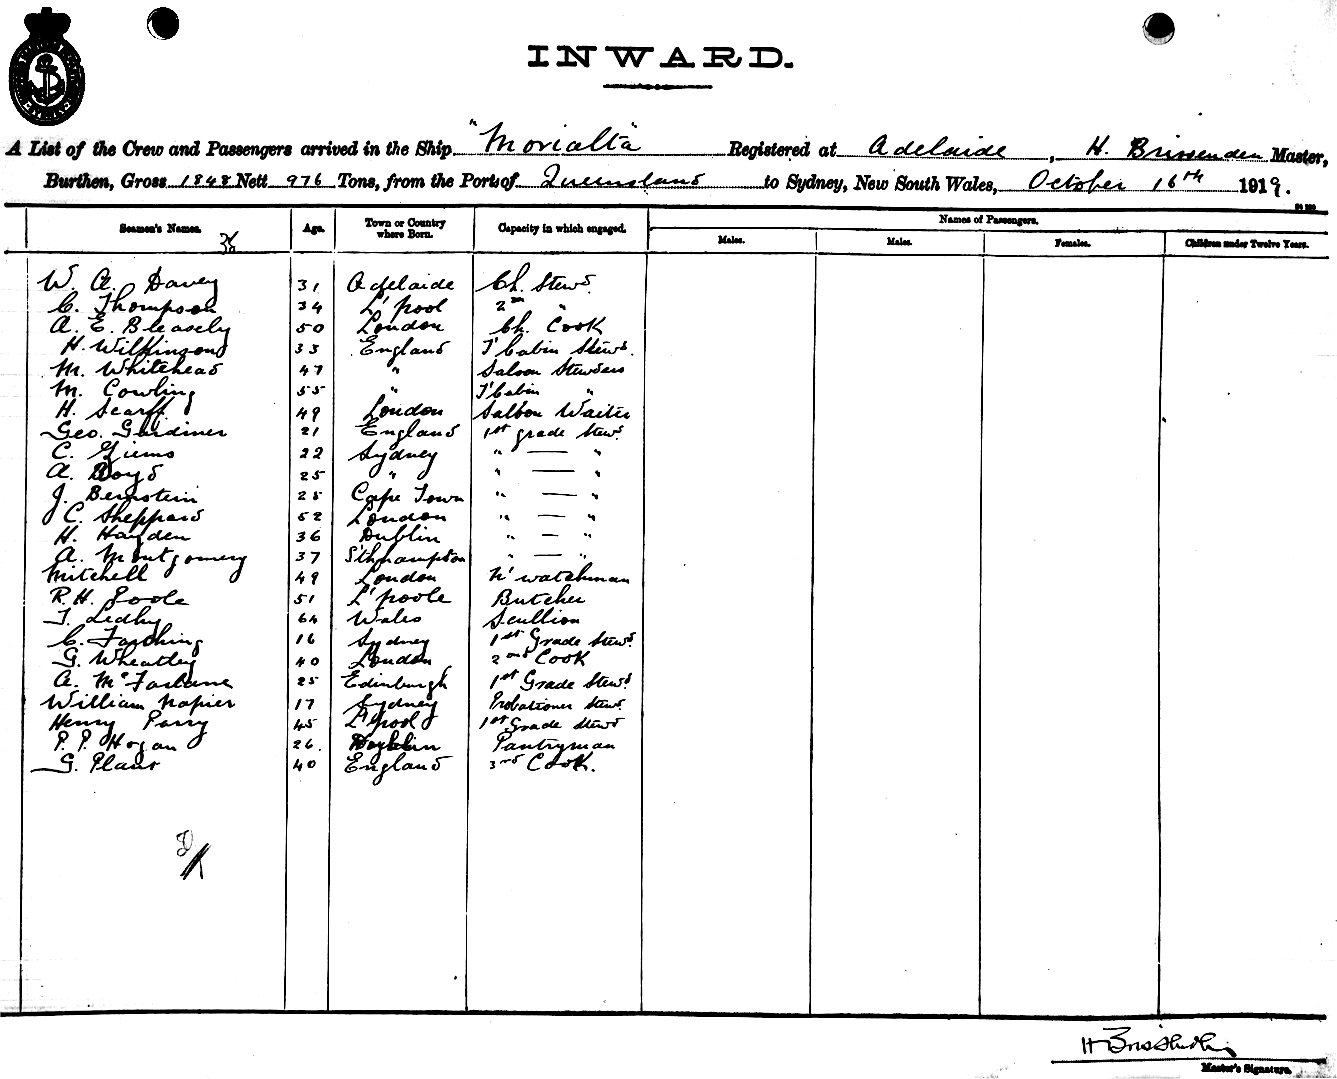 INWARD.
A List of the Crew and Passengers arrived in the Ship "Morialta" Registered at Adelaide, H. Brissenden Master,
Burthen, Gross 1848 Nett 976 Tons, from the Port of Queensland to Sydney, New South Wales, October 16th 1919.
Seamen's Names. Age. Town or Country where Born. Capacity in which engaged. Names of Passengers.
Males. Males. Females. Children under Twelve Years.
W. A. Davey 31 Adelaide Ch. Stewd.
C. Thompson 34 L'pool 2nd "
A. E. Bleasely 50 London Ch. Cook
H. Wilkinson 33 England T'Cabin Stewd.
M. Whitehead 47 " Saloon Stewdess
M. Cowling 55 " T'Cabin "
H. Scarff 49 London Saloon Waiter
Geo. Gardiner 21 England 1st grade Stewd.
C. 22 Sydney " — "
A. Boyd 25 " " — "
J. Bernstein 25 Cape Town " — "
C. Sheppard 52 London " — "
H. Hayden 36 Dublin " — "
A. Montgomery 37 S'thhampton " — "
Mitchell 49 London N' watchman
R. H. Poole 51 L'poole Butcher
T. Ledhy 64 Wales Scullion
C. 16 Sydney 1st Grade Stewd.
G. Wheatley 40 London 2nd Cook
A. McFarlane 25 Edinburgh 1st Grade Stewd.
William Napier 17 Sydney Probationer Stewd.
Henry Parry 45 L'pool 1st Grade Stewd
P. P. Hogan 26. Dublin Pantryman
G. 40 England 3rd Cook.
H Brissenden
Master's Signature.